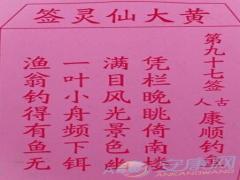 黄大仙灵签
第九十七签
古人 康顺钓鱼
凭栏晚眺倚南楼
满目风光景色幽
一叶小舟频下饵
渔翁钓得有鱼无